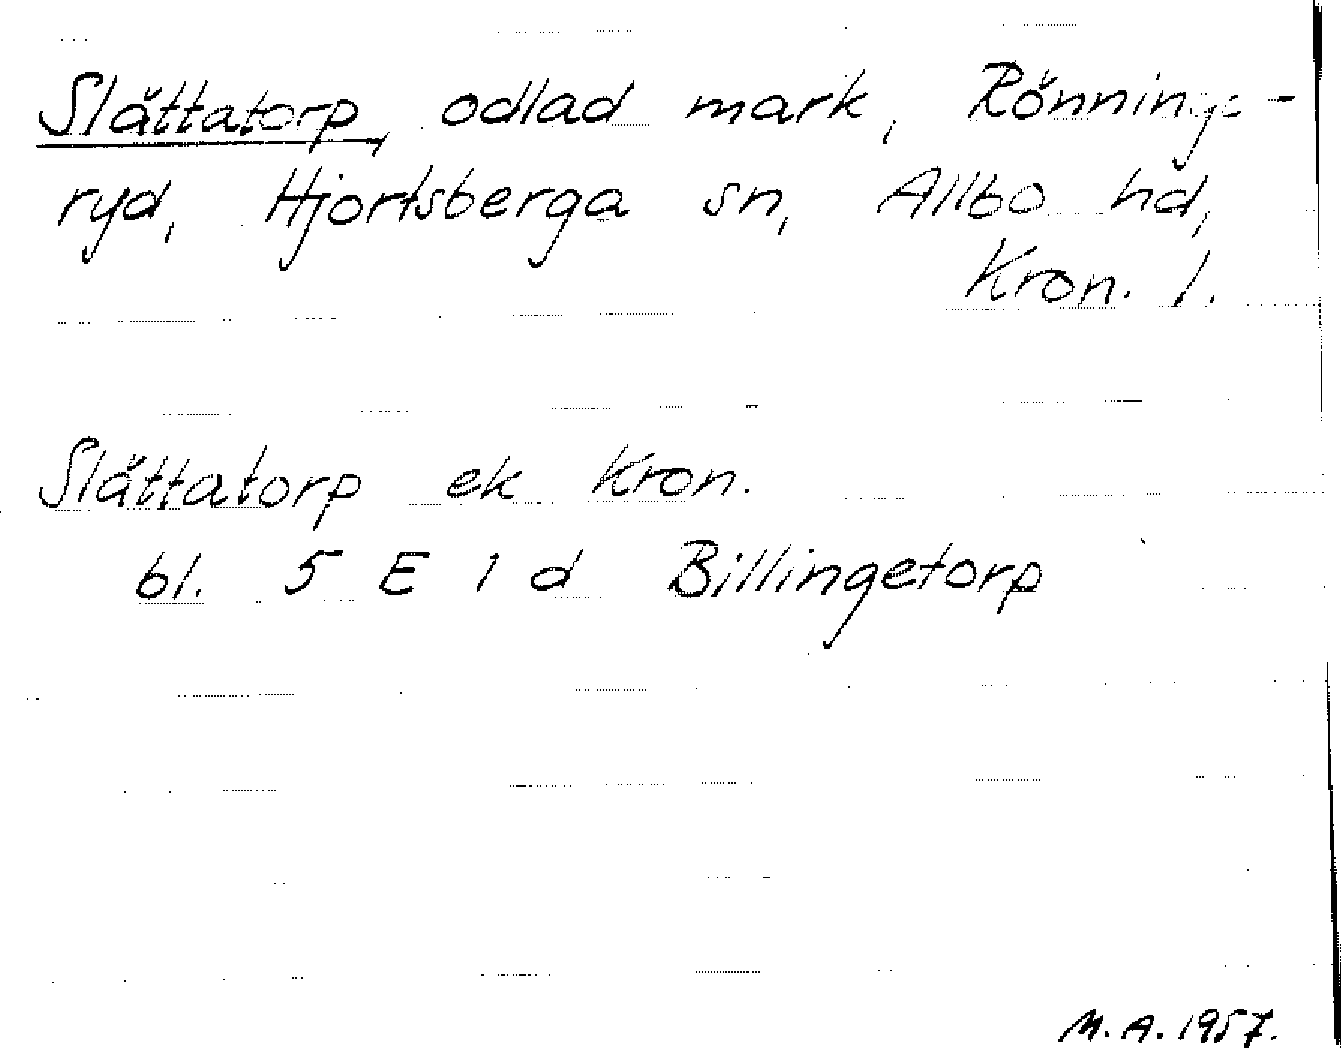 Slättatorp, odlad mark, Rönninge-
ryd, Hjortsberga sn, Allbo hd,
Kron. l.
Slättatorp ek Kron.
bl. 5 E 1 d Billingetorp
M.A. 1957.